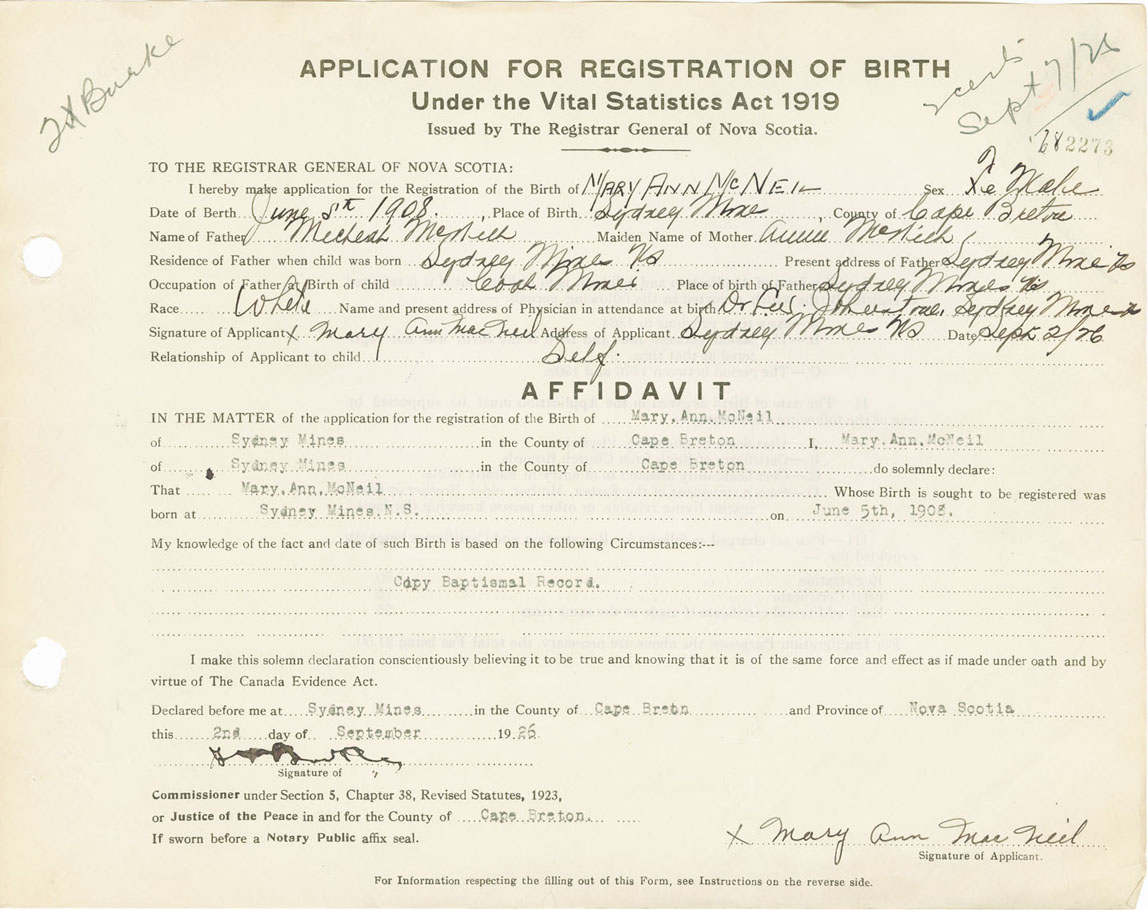 J X Burke
Sept 7/26
682273
APPLICATION FOR REGISTRATION OF BIRTH
Under the Vital Statistics Act 1919
Issued by The Registrar General of Nova Scotia.
TO THE REGISTRAR GENERAL OF NOVA SCOTIA:
I hereby make application for the Registration of the Birth of MARY ANN MCNEIL Sex Fe Male
Date of Berth June 5th 1908. , Place of Birth Sydney Mines , County of Cape Breton
Name of Father Micheal McNeil Maiden Name of Mother Annie McNeil
Residence of Father when child was born Sydney Mines NS Present address of Father Sydney Mines NS
Occupation of Father at Birth of child Coal Miner Place of birth of Father Sydney Mines NS
Race White Name and present address of Physician in attendance at birth Dr Johnstone, Sydney Mines NS
Signature of Applicant X Mary Ann MacNeil Address of Applicant Sydney Mines NS Date Sept 2/26
Relationship of Applicant to child Self.
AFFIDAVIT
IN THE MATTER of the application for the registration of the Birth of Mary.Ann.McNeil
of Sydney Mines in the County of Cape Breton I, Mary.Ann.McNeil
of Sydney Mines in the County of Cape Breton do solemnly declare:
That Mary.Ann.McNeil Whose Birth is sought to be registered was
born at Sydney Mines.N.S. on June 5th, 1908.
My knowledge of the fact and date of such Birth is based on the following Circumstances:---
Copy Baptismal Record.
I make this solemn declaration conscientiously believing it to be true and knowing that it is of the same force and effect as if made under oath and by
virtue of The Canada Evidence Act.
Declared before me at Sydney Mines in the County of Cape Bretn and Province of Nova Scotia
this 2nd day of September 19 26.
Signature of
Commissioner under Section 5, Chapter 38, Revised Statutes, 1923,
or Justice of the Peace in and for the County of Cape Breton.
If sworn before a Notary Public affix seal.
X Mary Ann MacNeil
Signature of Applicant.
For Information respecting the filling out of this Form, see Instructions on the reverse side.